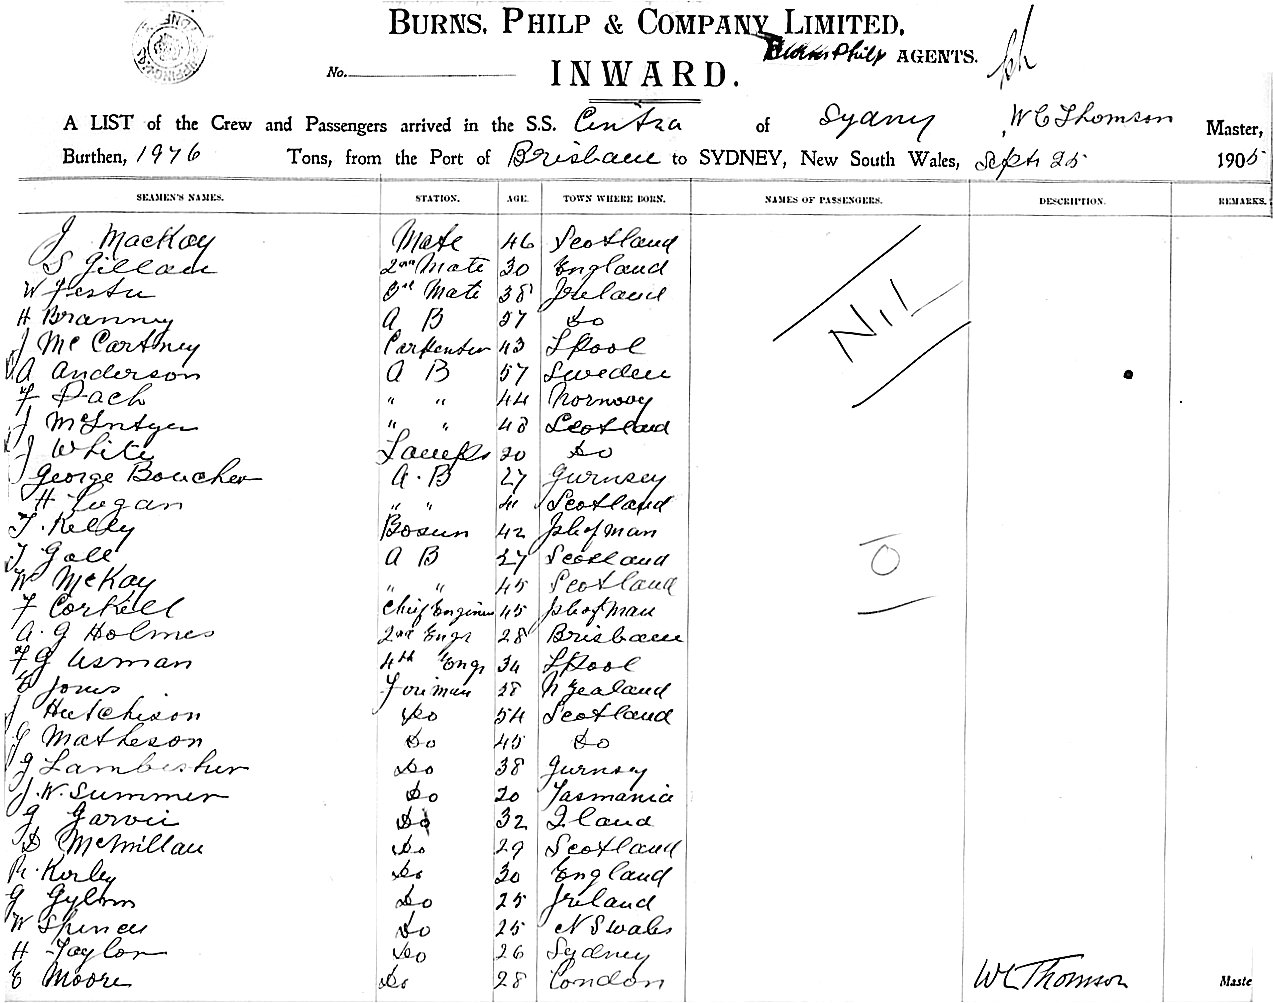 BURNS, PHILP & COMPANY LIMITED,
Burns Philp AGENTS.
No.
INWARD.
A LIST of the Crew and Passengers arrived in the S.S. Centra of Sydney W C Thomson Master,
Burthen, 1976 Tons, from the Port of Brisbane to SYDNEY, New South Wales, Sept 25 1905
SEAMEN'S NAMES. STATION. AGE. TOWN WHERE BORN. NAMES OF PASSENGERS. DESCRIPTION. REMARKS.
J MacKay Mate 46 Scotland
S Gillam 2nd Mate 30 England
W 3rd Mate 38 Ireland
H Branney A B 57 Do
J McCartney Carpenter 43 L'Pool
A Anderson A B 57 Sweden
F Dach " " 44 Norway
J McIntyer " " 48 Scotland
J White Lamps 20 Do
George Boucher A.B 27 Gurnsey
H Lugan " " 41 Scotland
T. Kelly Bosun 42 Isle of Man
T Gall A B 27 Scotland
W McKay " " 45 Scotland
F Corkell Chief Engineer 45 Isle of Man
A. G Holmes 2nd Engr 28 Brisbane
F G Usman 4th Engr 34 L'Pool
E Jones Foriman 38 N Zealand
J Hutchison Do 54 Scotland
G Matheson Do 45 Do
G Do 38 Gurnsey
J. W. Summer Do 20 Tasmania
G Garvie Do 32 I.land
D McMillan Do 29 Scotland
R. Kerley Do 30 England
G Do 25 Ireland
W Spincer Do 25 N S Wales
H Taylor Do 26 Sydney
E Moore Do 28 London
Nil
W C Thomson Maste